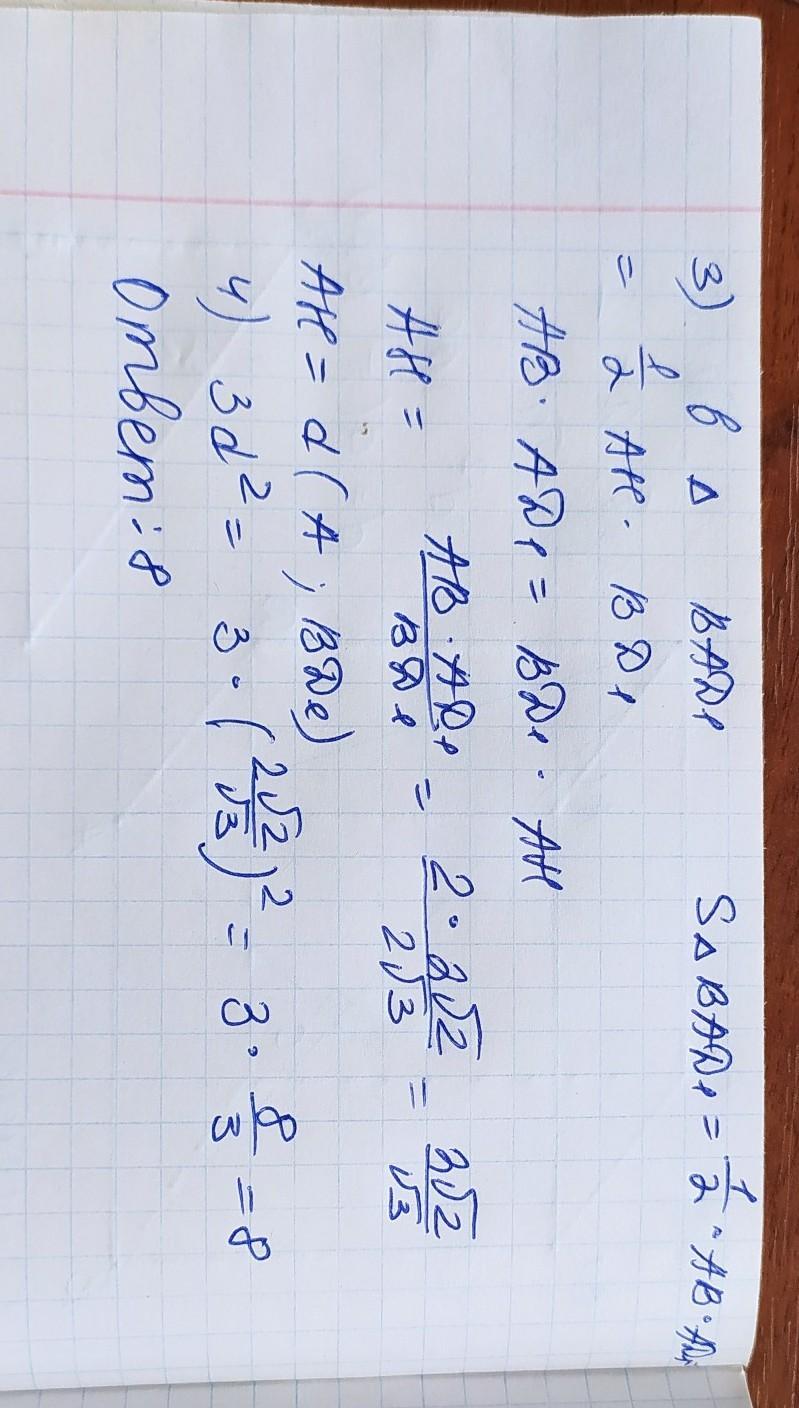 3) В △ BAD₁ S△BAD₁ = 1/2 · AB · AD₁
= 1/2 AH · BD₁
AB · AD₁ = BD₁ · AH
AH = AB · AD₁ / BD₁ = 2 · 2√2 / 2√3 = 2√2 / √3
AH = d(A; BD₁)
4) 3d² = 3 · (2√2 / √3)² = 3 · 8/3 = 8
Ответ: 8